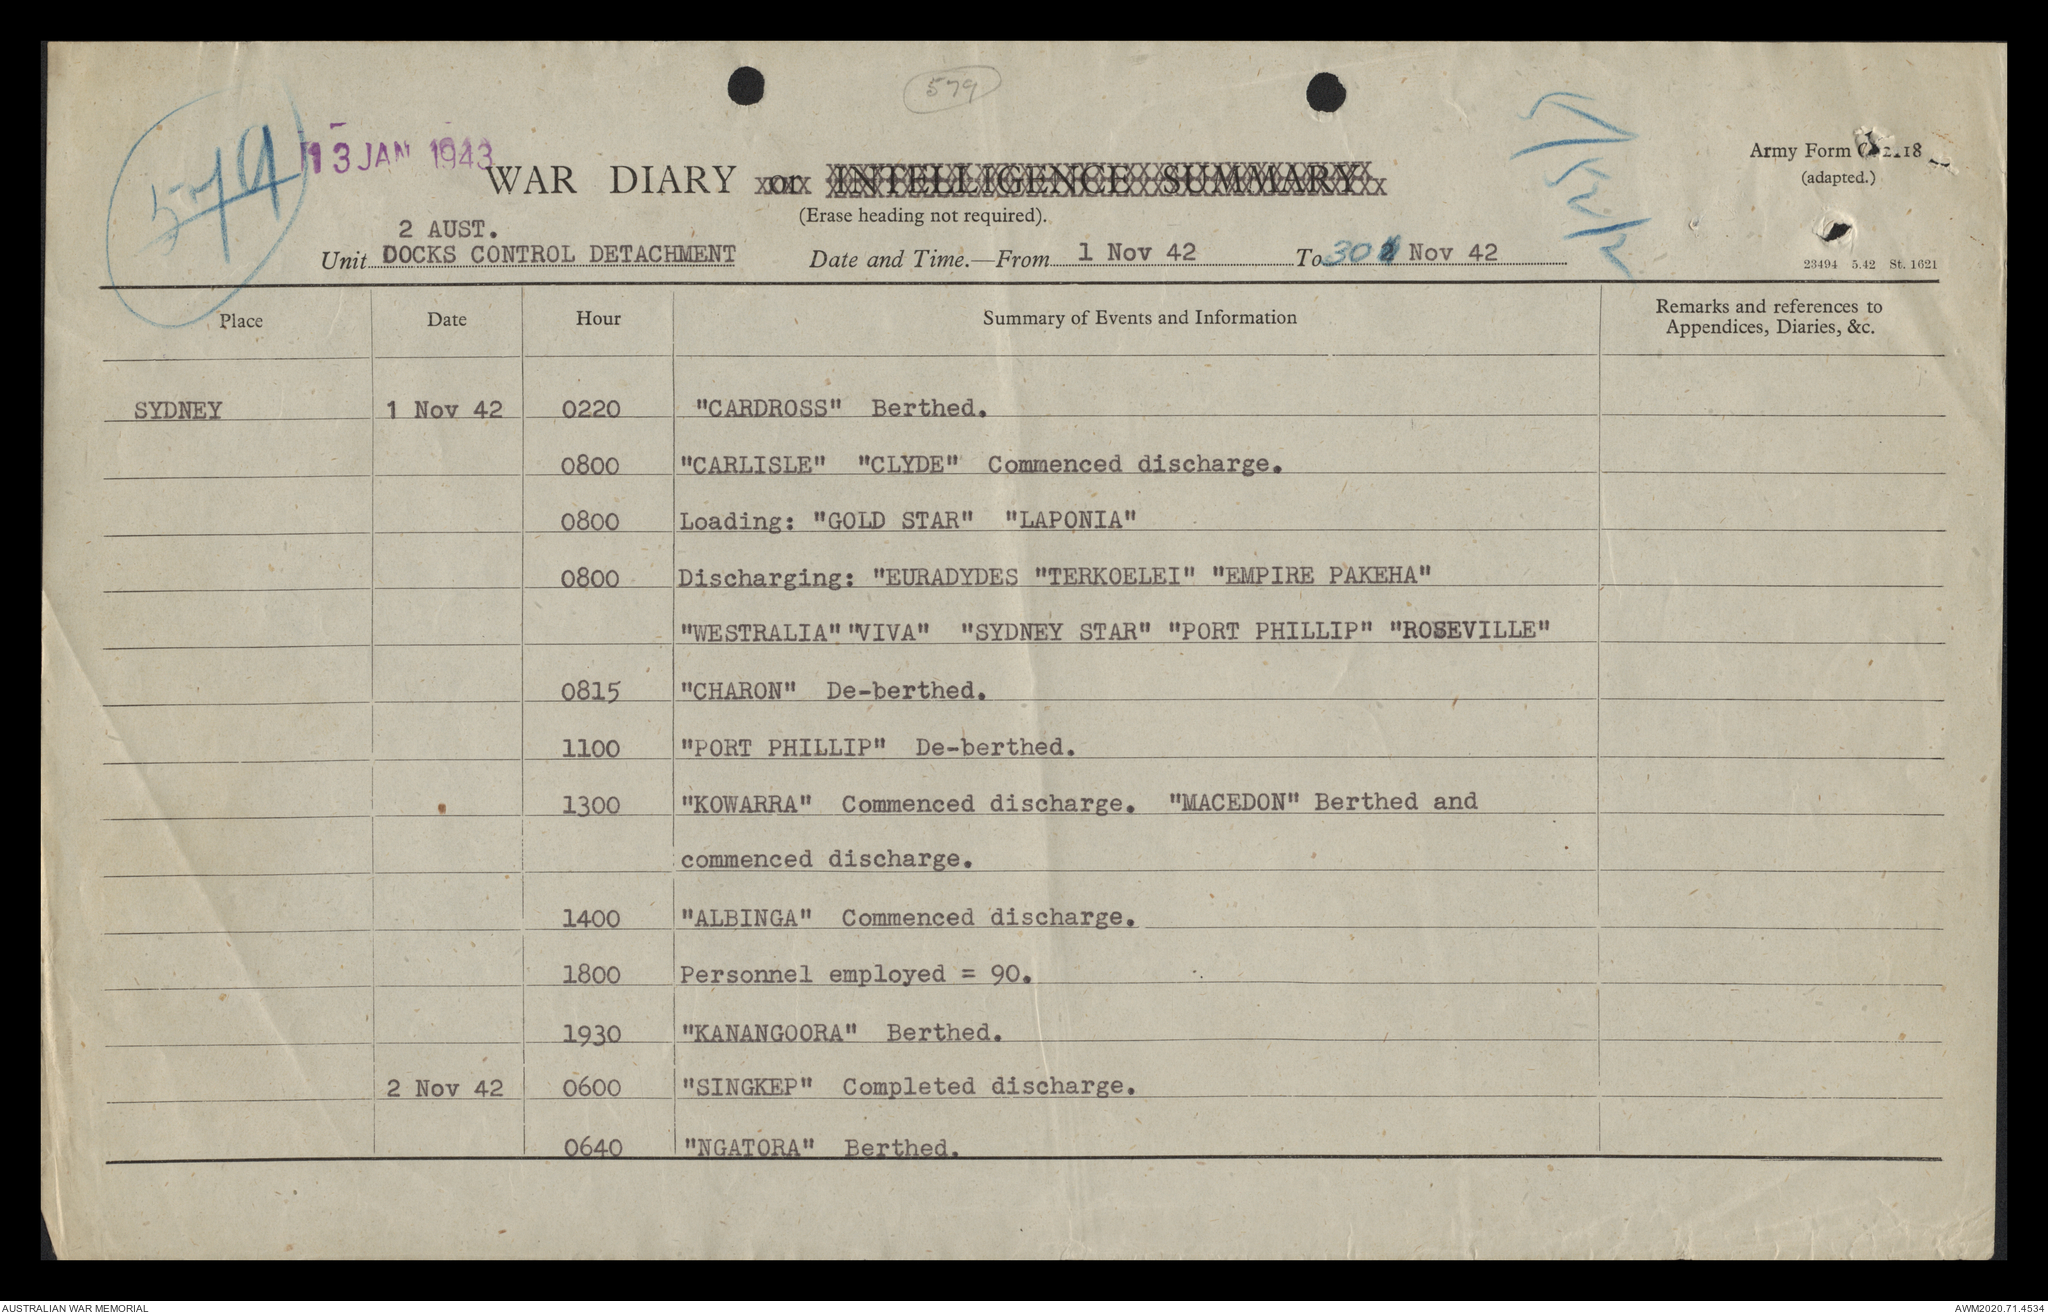 579
579
13 JAN 1943
WAR DIARY or INTELLIGENCE SUMMARY
(Erase heading not required).
Army Form C. 2118
(adapted.)
2 AUST.
Unit DOCKS CONTROL DETACHMENT Date and Time.—From 1 Nov 42 To 30 Nov 42
23494 5.42 St. 1621
Place Date Hour Summary of Events and Information Remarks and references to
Appendices, Diaries, &c.
SYDNEY 1 Nov 42 0220 "CARDROSS" Berthed.
0800 "CARLISLE" "CLYDE" Commenced discharge.
0800 Loading: "GOLD STAR" "LAPONIA"
0800 Discharging: "EURADYDES "TERKOELEI" "EMPIRE PAKEHA"
"WESTRALIA" "VIVA" "SYDNEY STAR" "PORT PHILLIP" "ROSEVILLE"
0815 "CHARON" De-berthed.
1100 "PORT PHILLIP" De-berthed.
1300 "KOWARRA" Commenced discharge. "MACEDON" Berthed and
commenced discharge.
1400 "ALBINGA" Commenced discharge.
1800 Personnel employed = 90.
1930 "KANANGOORA" Berthed.
2 Nov 42 0600 "SINGKEP" Completed discharge.
0640 "NGATORA" Berthed.
AUSTRALIAN WAR MEMORIAL AWM2020.71.4534